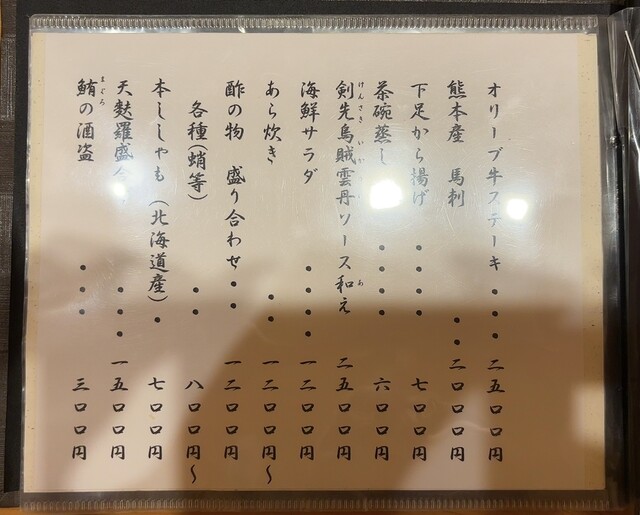 オリーブ牛ステーキ・・・二五〇〇円
熊本産　馬刺・・二〇〇〇円
下足から揚げ・・・・七〇〇円
茶碗蒸し・・・・六〇〇円
剣先烏賊雲丹ソース和え二五〇〇円
けんさきいか　あ
海鮮サラダ・・・・一二〇〇円
あら炊き・・一二〇〇円～
酢の物　盛り合わせ・・一二〇〇円
各種(蛸等)・・八〇〇円～
本ししゃも(北海道産)・七〇〇円
天麩羅盛・・・一五〇〇円
鮪の酒盗・・・三〇〇円
まぐろ